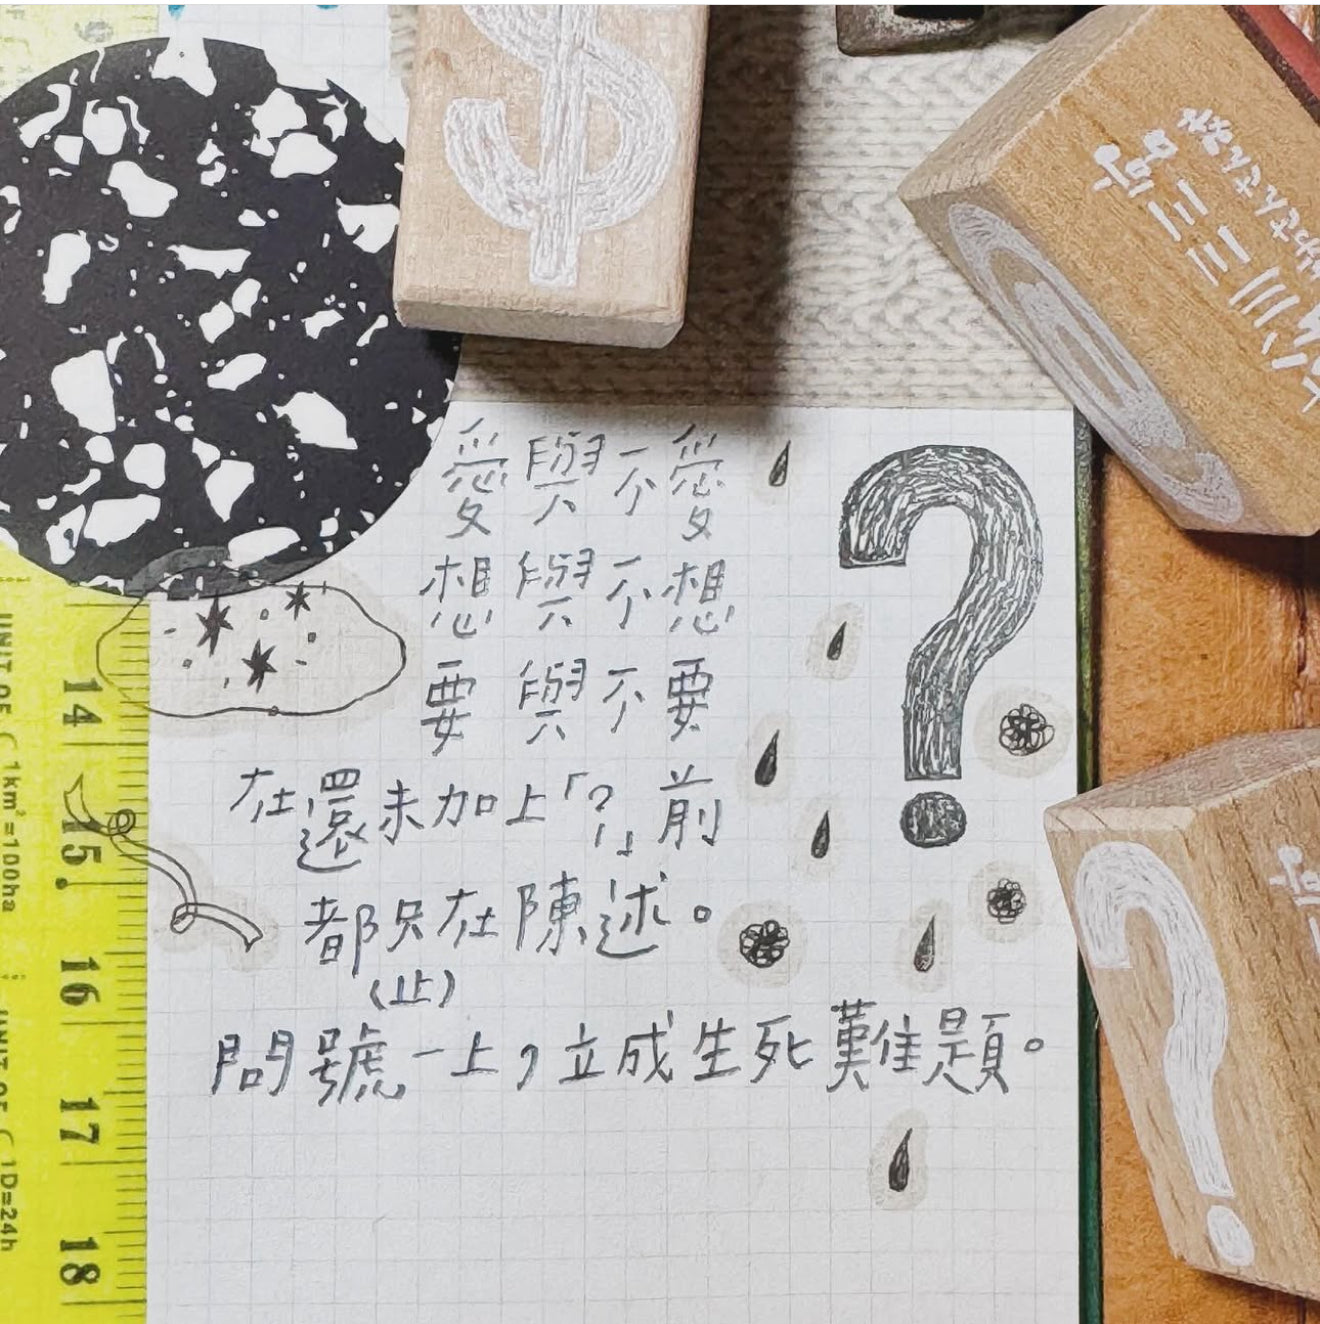 愛與不愛
想與不想
要與不要
在還未加上「?」前
都只在陳述。
(止)
問號一上，立成生死難題。
?
$
?
14
15.
16
17
18
1km²=100ha
1D=24h